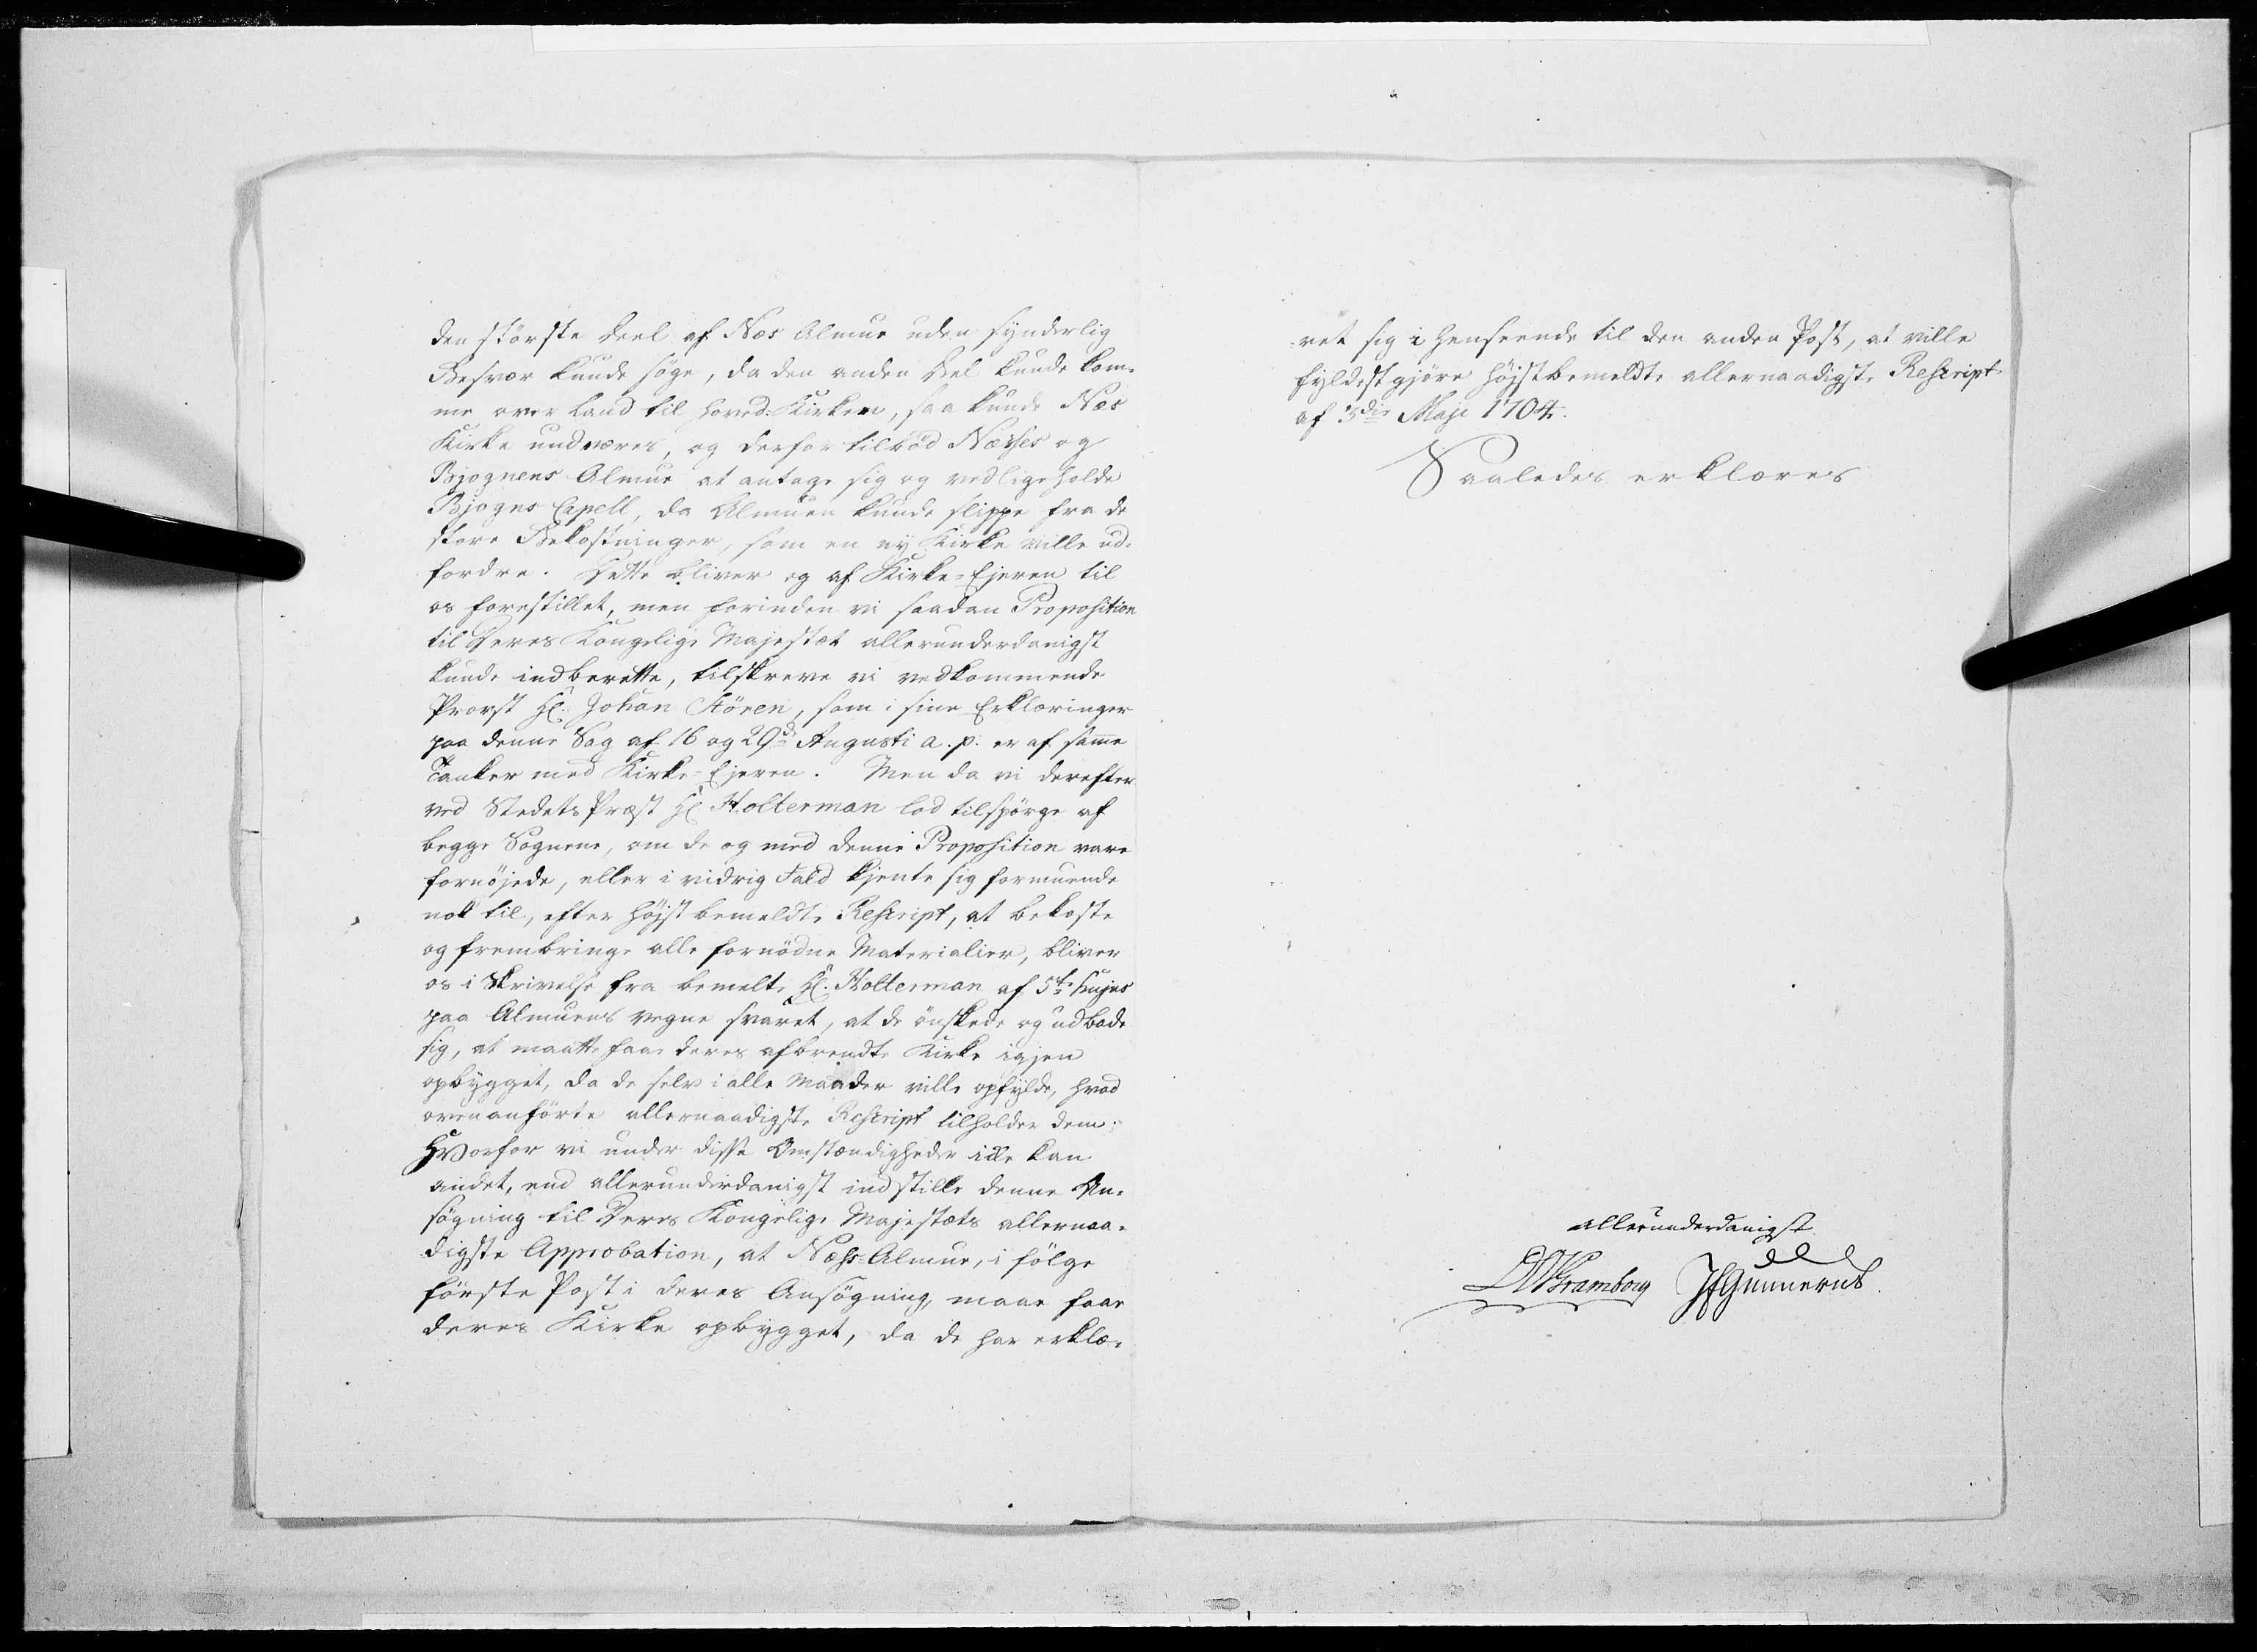 den største Deel af Næs Almue uden synderlig
Besvær kunde søge, da den anden Del kunde kom-
me over Land til Hoved-Kirken, saa kunde Næs
Kirke undværes, og derfor tilbød Næsses og
Bjognens Almue at antage sig og vedligeholde
Bjogns Capell, da Almuen kunde slippe fra de
store Bekostninger, som en ny Kirke ville ud-
fordre. Dette bliver og af Kirke-Ejeren til
os forestillet, men forinden vi saadan Proposition
til Deres Kongelige Majestæt allerunderdanigst
kunde indberette, tilskreve vi vedkommende
Provst Hr. Johan Stören, som i sine Erklæringer
paa denne Sag af 16 og 29de Augusti a. p. er af samme
Tanker med Kirke-Ejeren. Men da vi derefter
ved Stedets Præst Hr Holterman lod tilspørge af
begge Sognene, om de og med denne Proposition vare
fornøjede, eller i vidrig Fald kjente sig formuende
nok til, efter højstbemeldte Rescript, at bekoste
og frembringe alle fornødne Materialier, bliver
os i Skrivelse fra bemelte Hr. Holterman af 5te hujus
paa Almuens vegne svaret, at de ønskede og udbade
sig, at maatte faae deres afbrendte Kirke igjen
opbygget, da de selv i alle Maader ville opfylde, hvad
ovenanførte allernaadigste Rescript tilholder dem;
Hvorfor vi under disse Omstændigheder ikke kan
andet, end allerunderdanigst indstille denne An-
søgning til Deres Kongelige Majestæts allernaa-
digste Approbation, at Næss-Almue, i følge
første Post i deres Ansøgning, maae faae
deres Kirke opbygget, da de har erklæ-
ret sig i Henseende til den anden Post, at ville
fyldestgjøre højstbemeldte allernaadigste Rescript
af 3die Maji 1704.
Saaledes erklæres
allerunderdanigst
JfGunnerus.